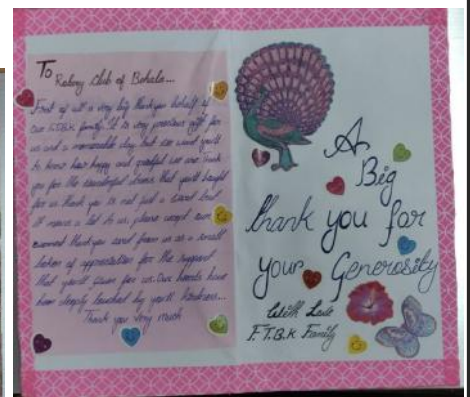 To
Rotary Club of Behala...
First of all a very big thankyou behalf of
our F.T.B.K family. It is very precious gift for
us and a memorable day, but we want you'll
to know how happy and grateful we are. Thank
you for the wonderful items that you'll bought
for us thank you is not just a word but
it means a lot to us, please accept our
thank you card from us as a small
token of appreciation for the support
that you'll given for us. Our hearts have
been deeply touched by you'll kindness...
Thank you very much
A
Big
thank you for
your Generosity
With Love
F.T.B.K Family